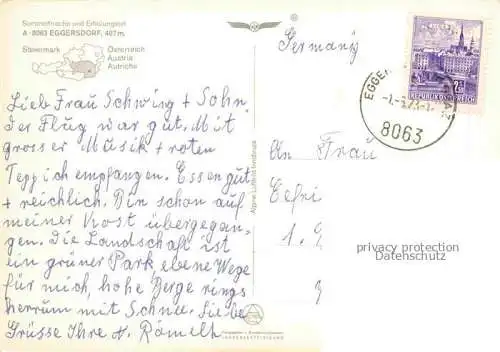 Sommerfrische und Erholungsort
A - 8063 EGGERSDORF, 407 m.
Steiermark
Österreich
Austria
Autriche
Lieb Frau Schwing + Sohn.
Der Flug war gut. Mit
grosser Musik + roten
Teppich empfangen. Essen gut
+ reichlich. Bin schon auf
meiner Kost übergegan-
gen. Die Landschaft ist
ein grüner Park, ebene Wege
für mich, hohe Berge rings
herrum mit Schnee. Liebe
Grüsse Ihre A. Römelt
Alpine Luftbild Innsbruck
Germany
An Frau
1.
8063
REPUBLIK ÖSTERREICH
privacy protection
Datenschutz